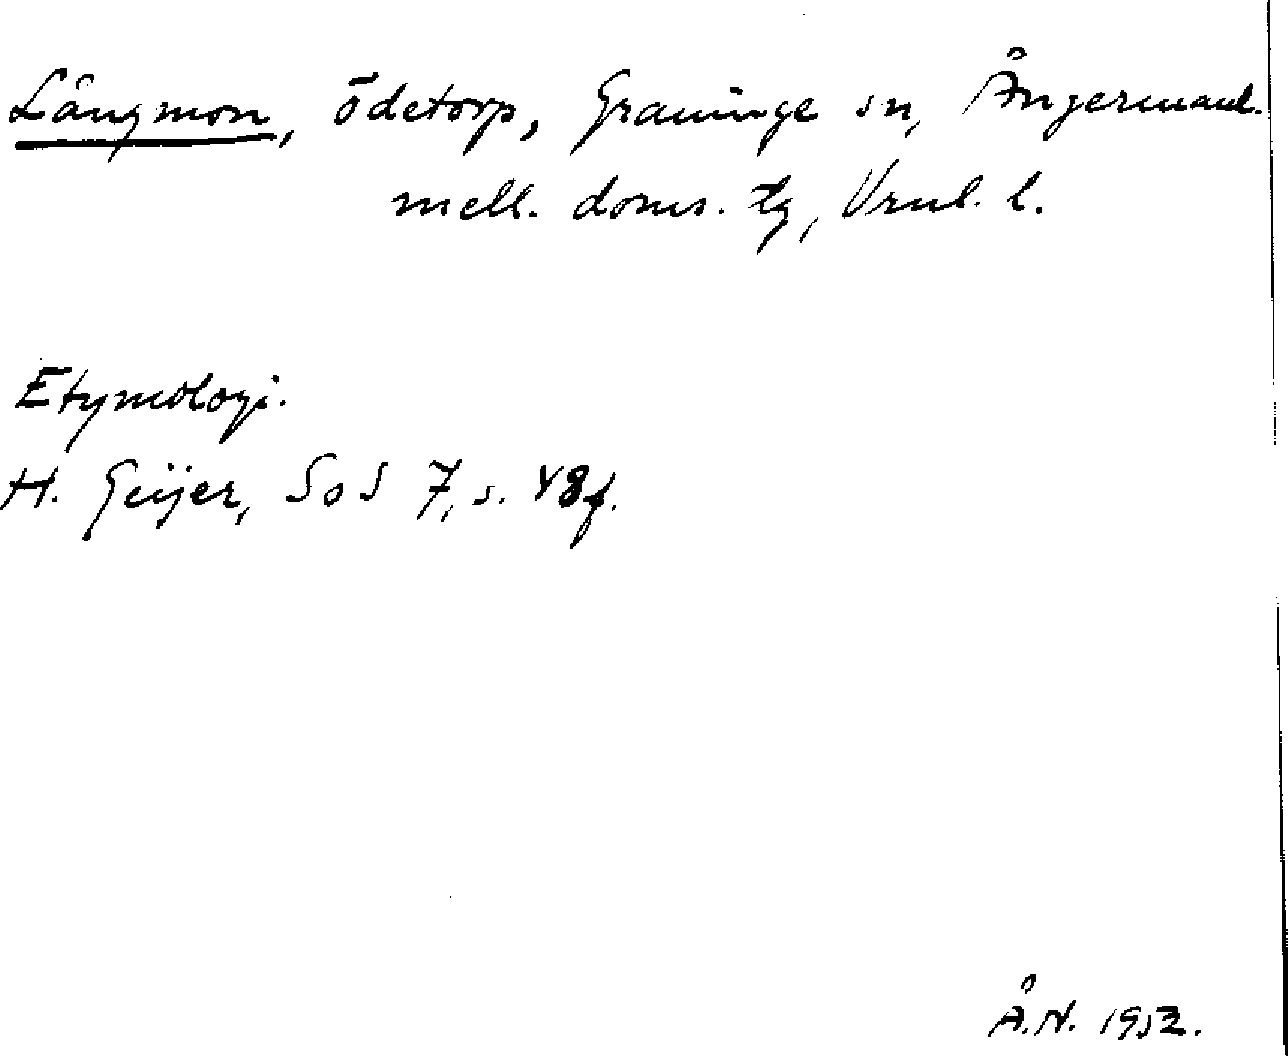 Långmon, ödetorp, Graninge sn, Ångermanl.
mell. doms. tg, Vrnl. l.
Etymologi.
H. Geijer, SoS 7, s. 48f.
Å.N. 1952.